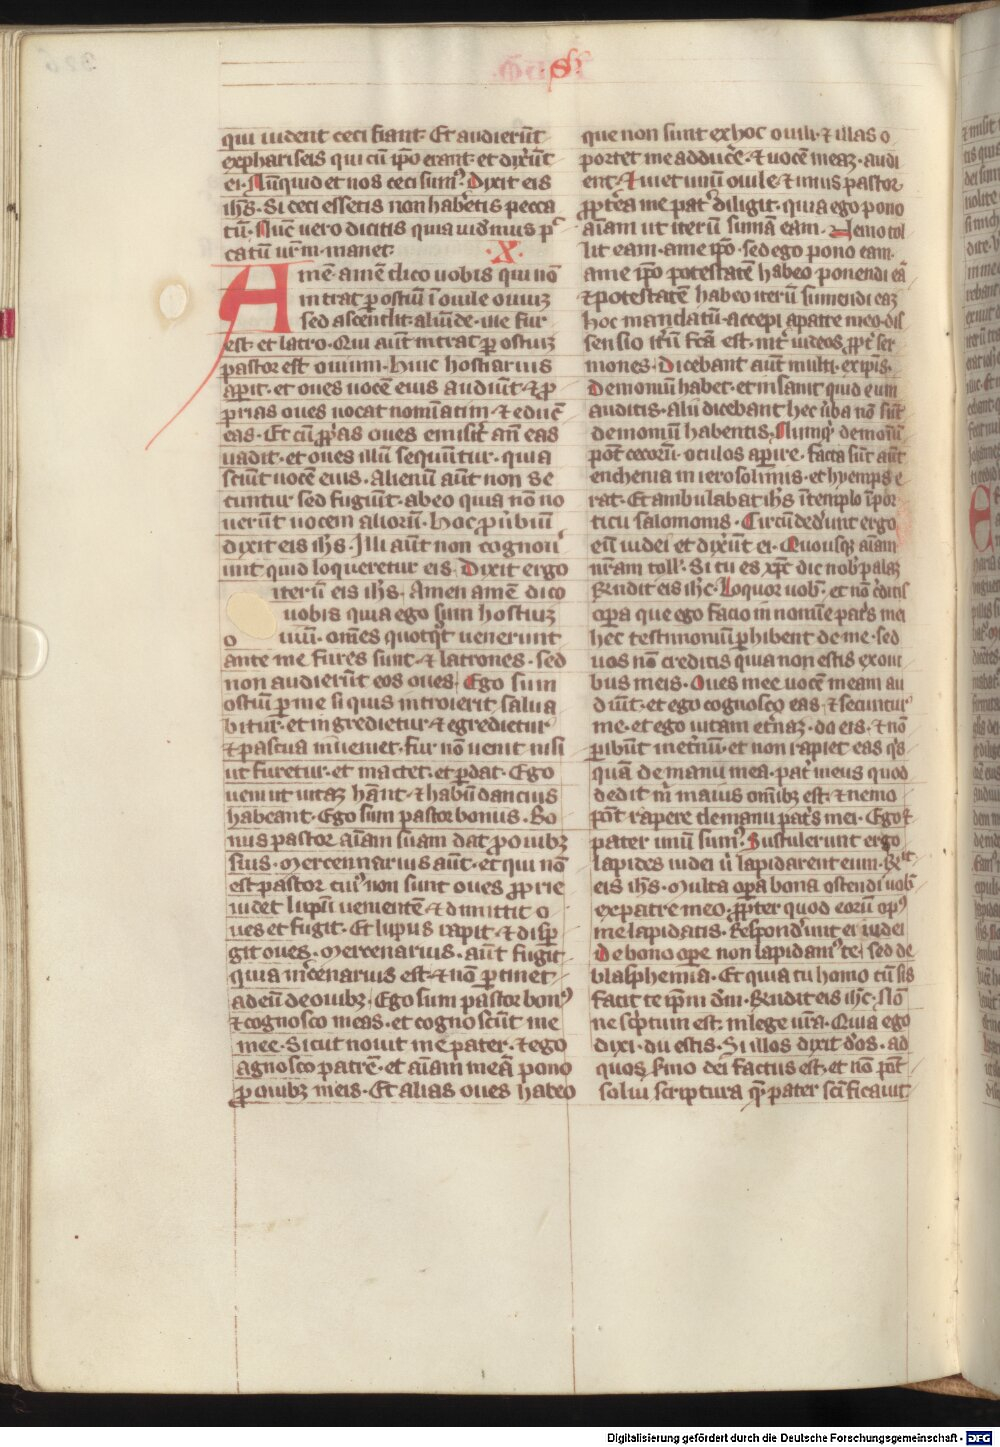 qui uident ceci fiant. Et audierūt
ex phariseis qui cū ip̄o erant. et dixer̄t
ei. Nūquid et nos ceci sumꝰ. Dixit eis
ih̄s. Si ceci essetis non haberetis pecca
tū. Nūc vero dicitis quia uidemus pᶜ
catū ur̄m. manet. ·X·
Amē. amē dico uobis qui nō
intrat ꝑ ostiū ī ouile ouiuꝫ
sed ascendit aliūde. ille fur
est. et latro. Qui aūt intrat ꝑ ostiuꝫ
pastor est ouium. Huic hostiarius
aperit. et oues uocē eius audiūt. ⁊ ꝓ
prias oues uocat nomīatim. ⁊ educ̄
eas. Et cū ꝓp̄as oues emiserit an̄ eas
uadit. et oues illū sequūtur. quia
sciūt uocē eius. Alienū aūt non se
cuntur sed fugiūt. ab eo quia nō no
uerūt uocem alioꝝ. Hoc ꝓuerbiū
dixit eis ih̄s. Illi aūt non cognou
unt quid loqueretur eis. Dixit ergo
iterū eis ih̄s. Amen amē dico
uobis quia ego sum hostiuꝫ
ouiū. om̄es quotqͦt uenerunt
ante me fures sunt. ⁊ latrones. sed
non audierūt eos oues. Ego sum
ostiū ꝑ me si quis introierit salua
bitur. et ingredietur. ⁊ egredietur
⁊ pascua inueniet. fur nō uenit nisi
ut furetur. et mactet. et ꝑdat. Ego
ueni ut uitaꝫ hānt. ⁊ habūdancius
habeant. Ego sum pastor bonus. Bo
nus pastor aīam suam dat ꝓ ouibꝫ
suis. Mercennarius aūt. et qui nō
est pastor cuiꝰ non sunt oues ꝓprie
uidet lupū uenientē ⁊ dimittit o
ues et fugit. Et lupus rapit. ⁊ disꝑ
git oues. Mercenarius. aūt fugit
quia mercenarius est. ⁊ nō ꝑtinet
ad eū de ouibꝫ. Ego sum pastor bonꝰ
⁊ cognosco meas. et cognoscūt me
mee. Sicut nouit me pater. ⁊ ego
agnosco patrē. et aīam meā pono
ꝓ ouibꝫ meis. Et alias oues habeo
que non sunt ex hoc ouili. ⁊ illas o
portet me adducere. ⁊ uocē meaꝫ. audi
ent. ⁊ fiet unū ouile. ⁊ unus pastor
ꝓpterea me pater diligit. quia ego pono
aīam ut iterū sumā eam. Nemo tol
lit eam. a me ip̄o. sed ego pono eam.
a me ip̄o potestatē habeo ponendi eā
⁊ potestatē habeo iterū sumendi eaꝫ
hoc mandatū. accepi a patre meo. dis
sensio iterū fcā est. int̄ iudeos ꝓpter ser
mones. Dicebant aūt multi. ex ipīs.
Demoniū habet. et insanit quid eum
auditis. alii dicebant hec uerba nō sūt
demoniū habentis. Numqͥ demoniū
pōt cecoꝝ. oculos aperire. facta sūt aūt
enchenia in ierosolimis. et hyemps e
rat. Et ambulabat ih̄s ī templo ī por
ticu salomonis. Circūdederunt ergo
eū iudei et dixerūt ei. Quousqꝫ aīam
nr̄am tollˢ. Si tu es xp̄c dic nobˢ palaꝫ
Rn̄dit eis ih̄c. Loquor uobˢ. et nō creditis
opera que ego facio in nomine patris mei
hec testimoniū ꝑhibent de me. sed
uos nō creditis quia non estis ex oui
bus meis. Oues mee uocē meam au
diūt. et ego cognosco eas. ⁊ secuntur
me. et ego uitam eternaꝫ. do eis. ⁊ nō
ꝑibūt in eternū. et non rapiet eas qͥs
quā de manu mea. pater meus quod
dedit mͥ maius om̄ibꝫ est. ⁊ nemo
pōt rapere de manu patris mei. Ego ⁊
pater unū sumꝰ. Sustulerunt ergo
lapides iudei ut lapidarent eum. Rn̄t
eis ih̄s. Multa opera bona ostendi uobˢ
ex patre meo. ꝓpter quod eoꝝ opꝰ
me lapidatis. Responderunt ei iudei
De bono opere non lapidamꝰ te. sed de
blasphemia. Et quia tu homo cū sis
facit te ip̄m dm̄. Rn̄dit eis ih̄c. Nō
ne scriptum est. in lege ur̄a. Quia ego
dixi. dii estis. Si illos dixit deos. ad
quos sermo dei factus est. et nō pōt
solui scriptura qͣ pater sc̄ificauit
Digitalisierung gefördert durch die Deutsche Forschungsgemeinschaft - DFG